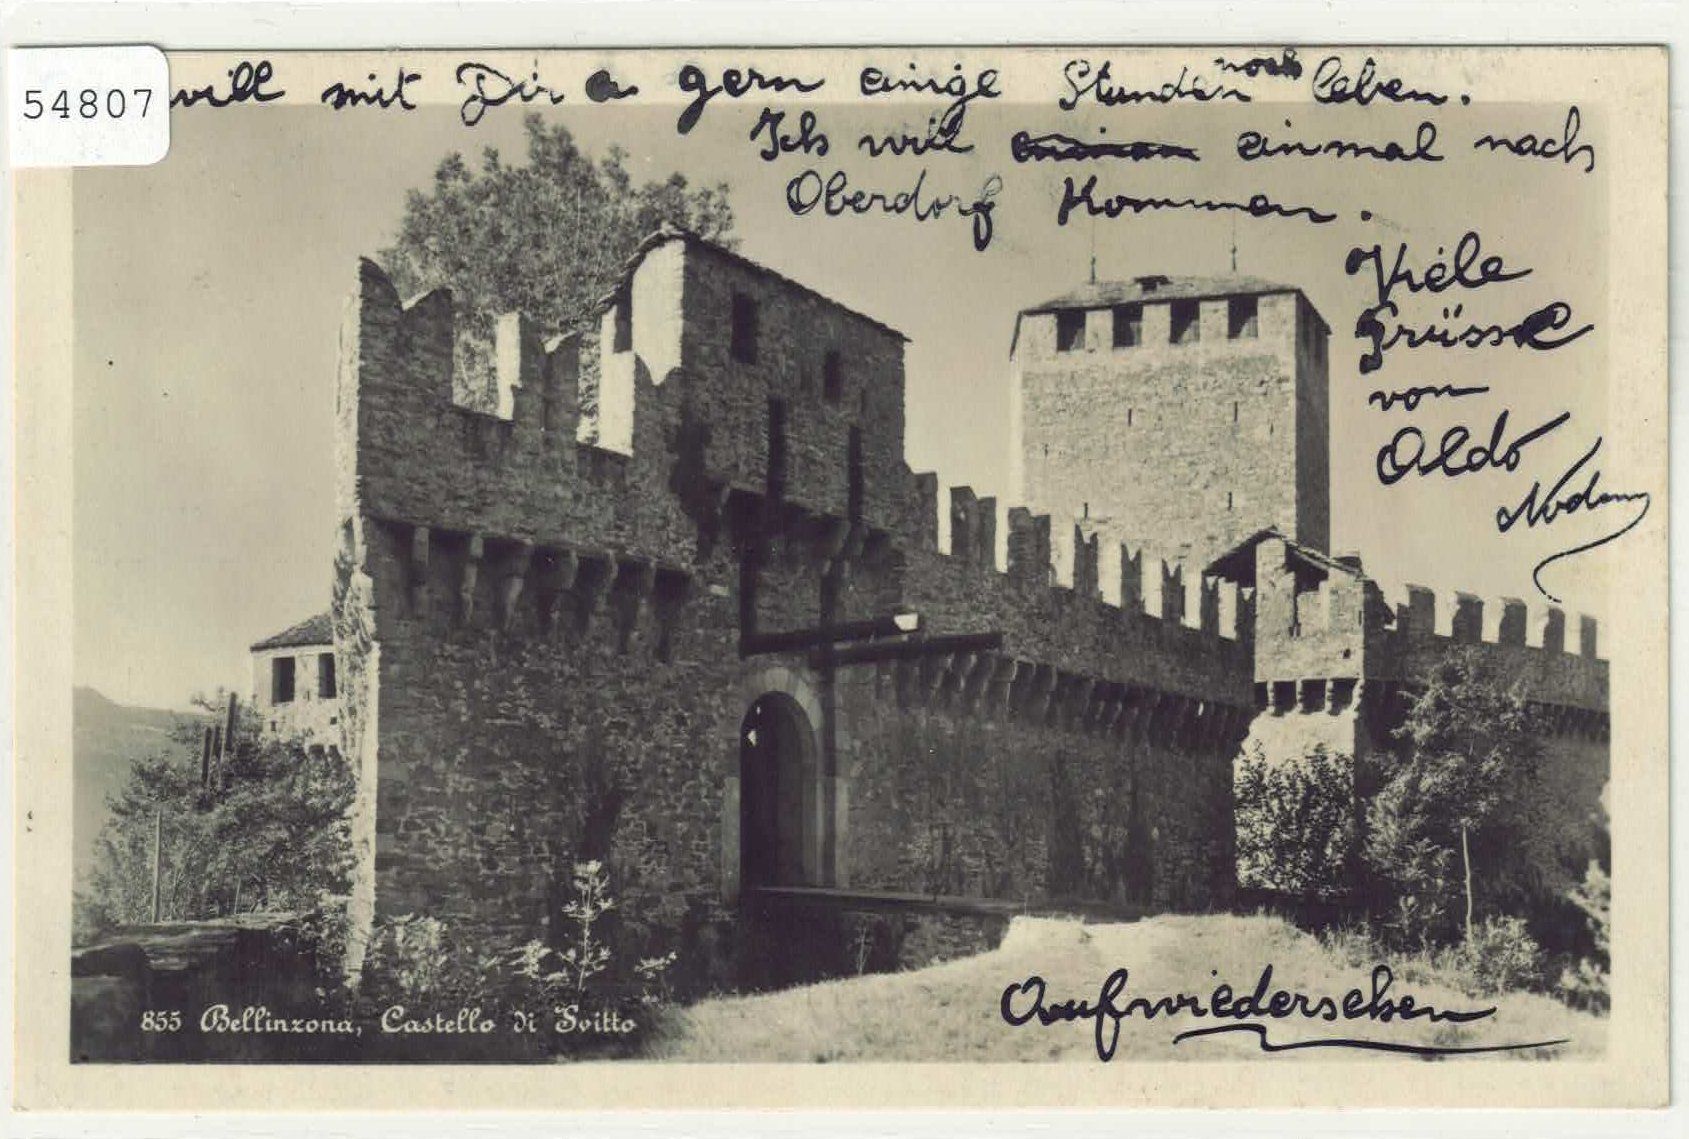 54807
will mit Dir gern einige Stunden noch leben.
Ich will einmal nach
Oberdorf kommen.
Viele
Grüsse
von
Aldo
Aufwiedersehen
855 Bellinzona, Castello di Svitto